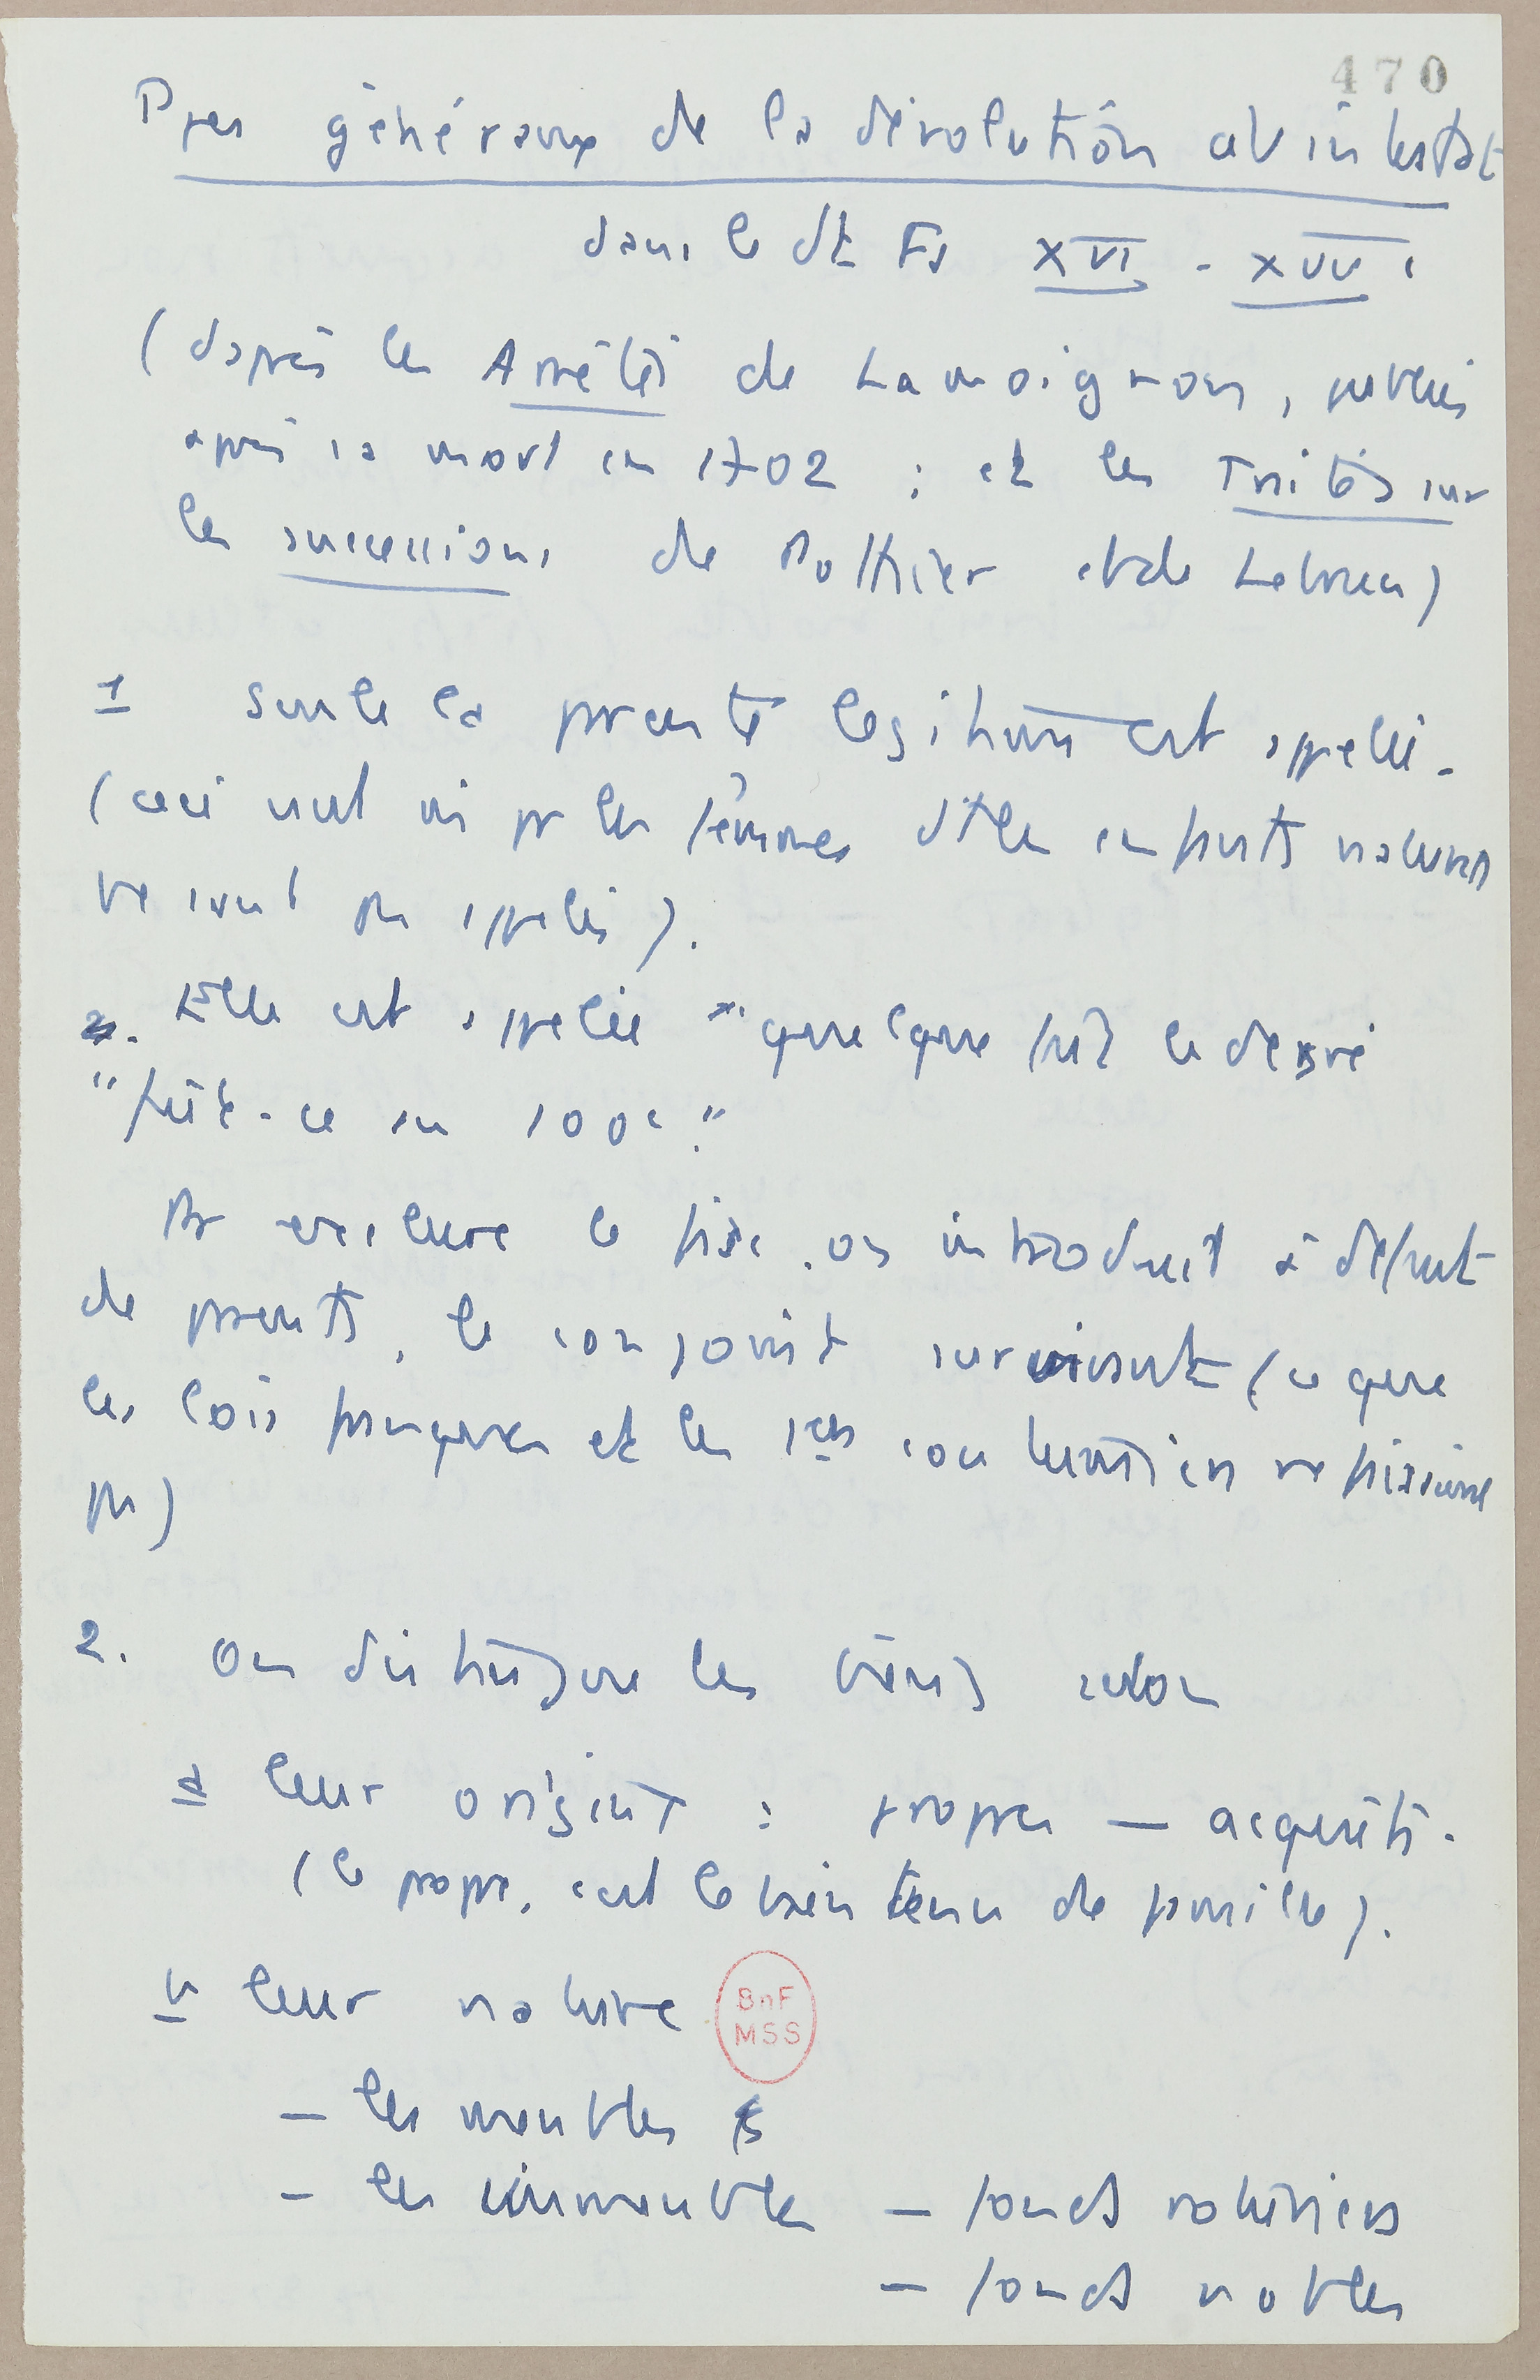 470
Ppes généraux de la dévolution ab intestat
dans le dt Fs XVI - XVIIe
(d'après les Arrêtés de Lamoignon, publiés
après sa mort en 1702 ; et les Traités sur
les successions de Pothier et de Lebrun)
1 Seule la parenté légitime est appelée.
(ceci vaut aussi pr les femmes et les enfants naturels
ne sont pas appelés).
2. Elle est appelée "quelque soit le degré
"fût-ce au 100e."
Pr exclure le fisc, on introduit à défaut
de parents, le conjoint survivant (ce que
les lois franques et les 1ers coutumiers ne faisaient
pas)
2. On distingue les biens selon
a leur origine : propres — acquêts.
(le propre, c'est le bien tenu de famille).
b leur nature
BnF
MSS
— les meubles
— les immeubles — fonds roturiers
— fonds nobles